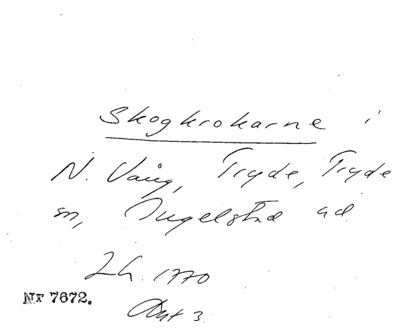 Skogkrokarne i
N. Vång, Tryde, Tryde
sn, Ingelstad
Lh. 1770
Akt 3.
NF 7672.